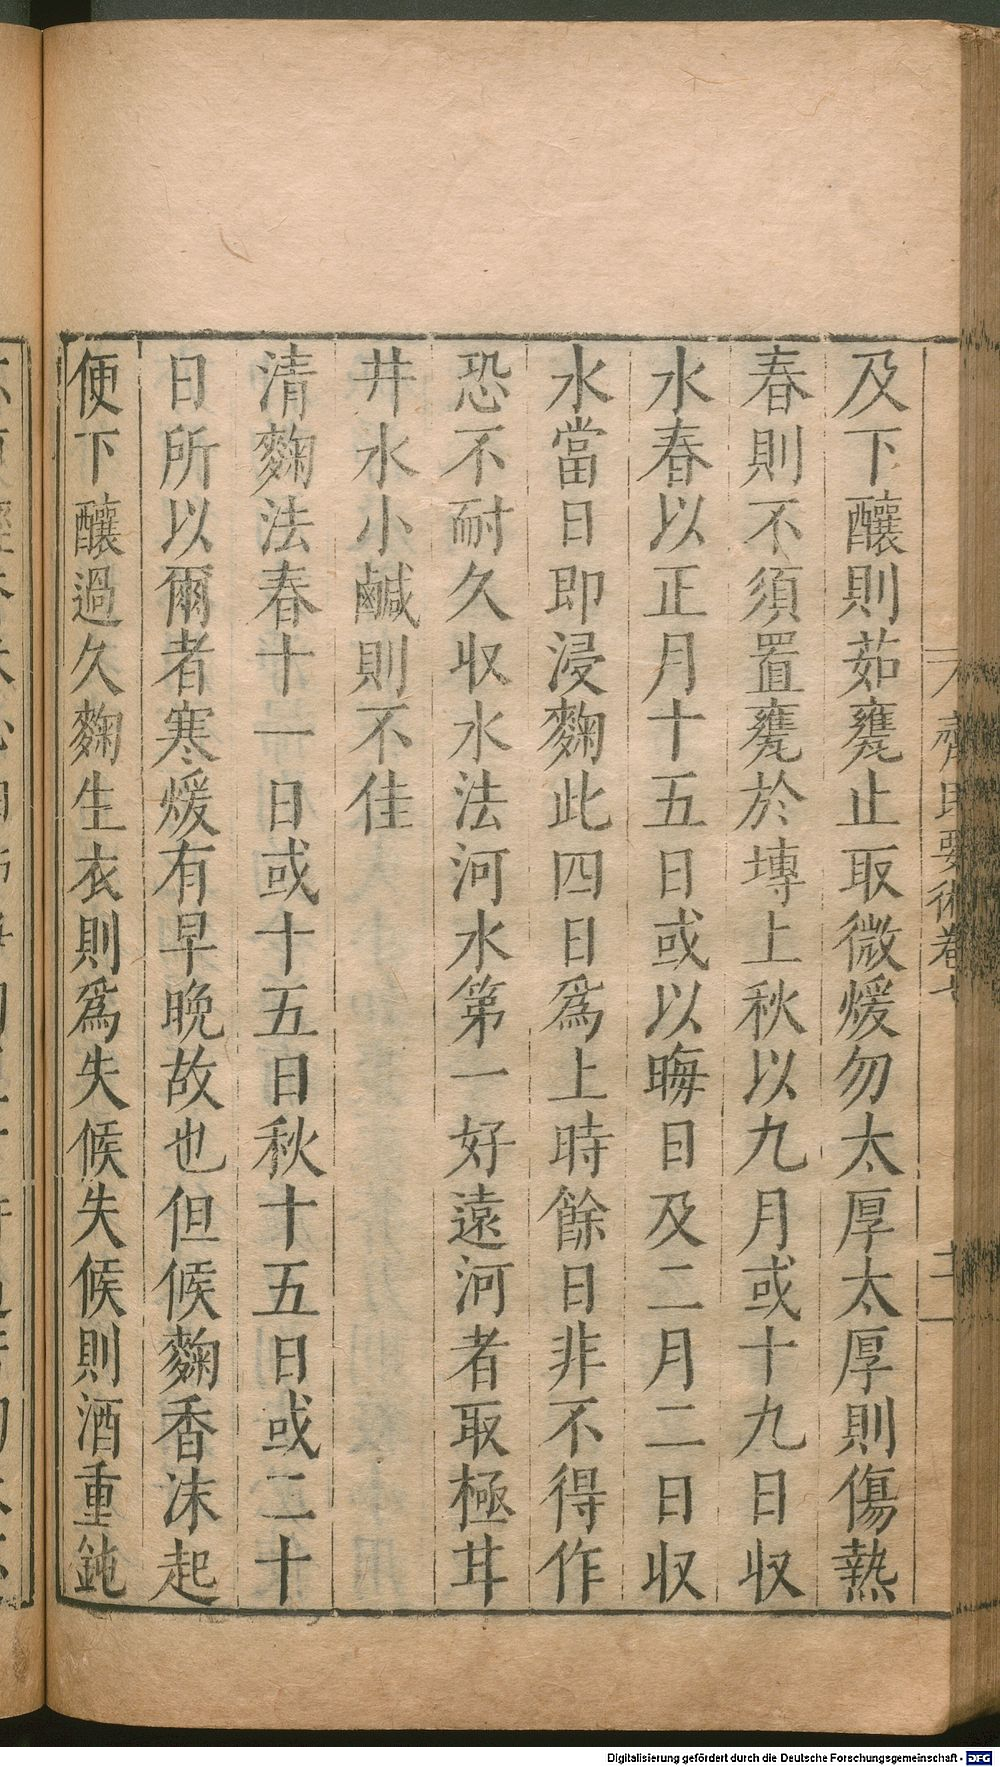 及下釀則茹甕止取微煖勿太厚太厚則傷熱
春則不須置甕於塼上秋以九月或十九日収
水春以正月十五日或以晦日及二月二日収
水當日即浸麴此四日爲上時餘日非不得作
恐不耐久収水法河水第一好遠河者取極甘
井水小鹹則不佳
清麴法春十一日或十五日秋十五日或二十
日所以爾者寒煖有早晚故也但候麴香沫起
便下釀過久麴生衣則爲失候失候則酒重鈍
齊民要術卷七
十一
Digitalisierung gefördert durch die Deutsche Forschungsgemeinschaft - DFG